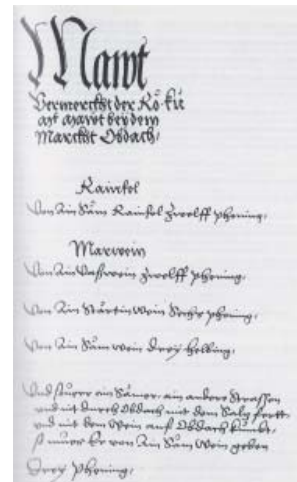 Mawt
Vermerckht der Rö: kü
ast mawt bey dem
Marckht Obdach,
Rainfel
Von Ain Säm Rainfel Zwelff phening,
Marwein
Von Ain Vaßwein Zwelff phening,
Von Ain Stärtin Wein Sechs phening,
Von Ain Säm wein Drey helbling,
Vnd ain Sämer, ain andere Strassen
vnd nit durch Obdach mit dem Saltz
vnd mit dem Wein auf Obdach kumbt,
so mues Er von Ain Säm Wein geben
Drey phening,